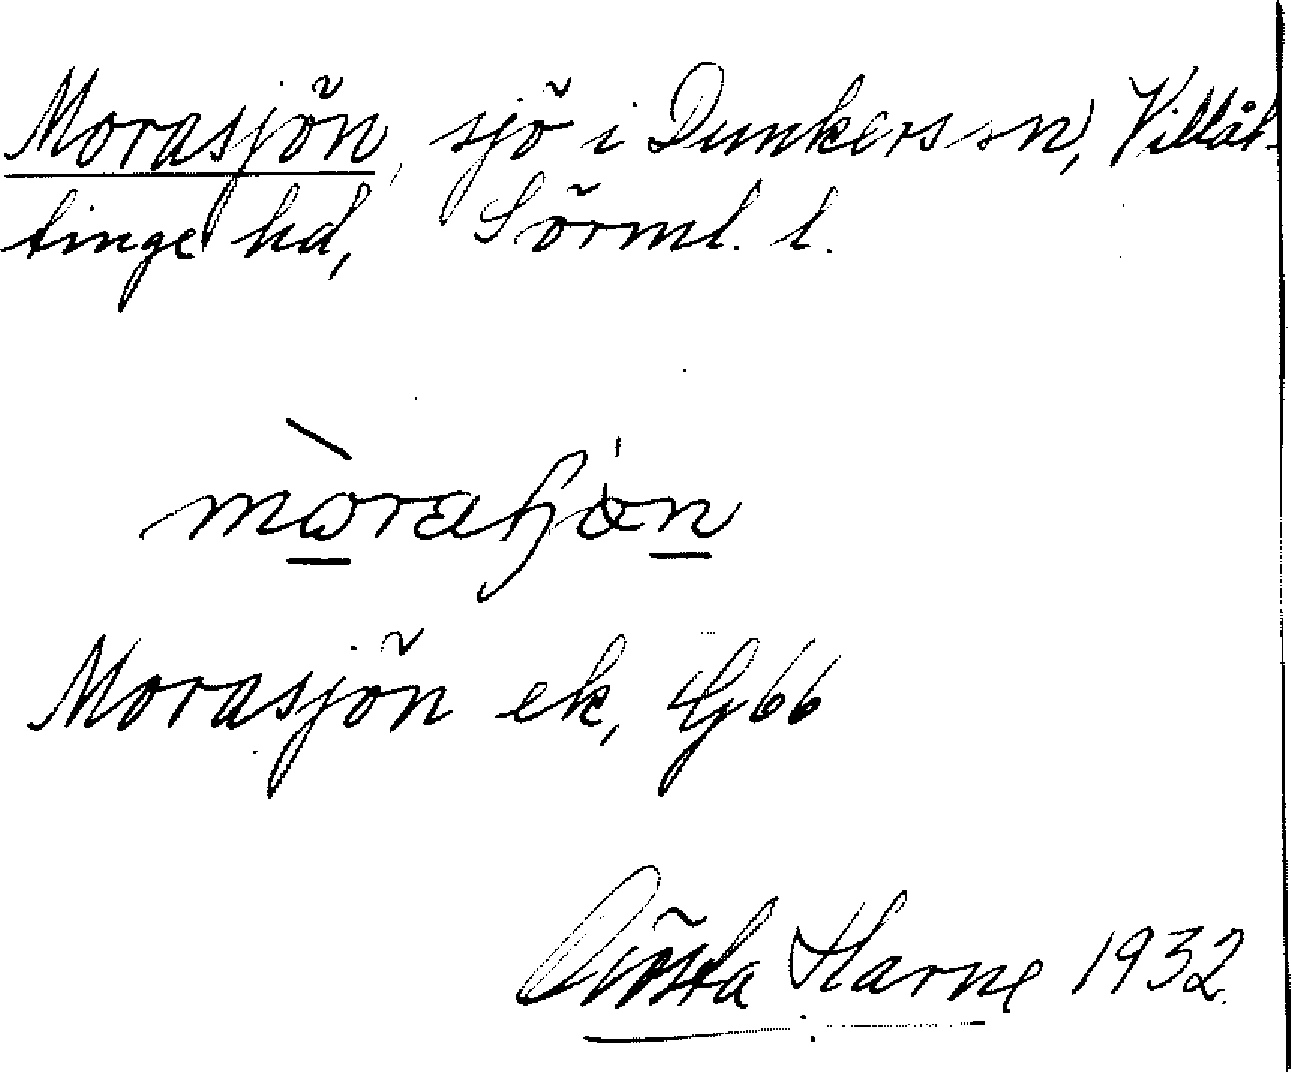 Morasjön, sjö i Dunkers sn, Villåt-
tinge hd, Sörml. l.
Morasjön ek, Gj66
Gösta Harne 1932.